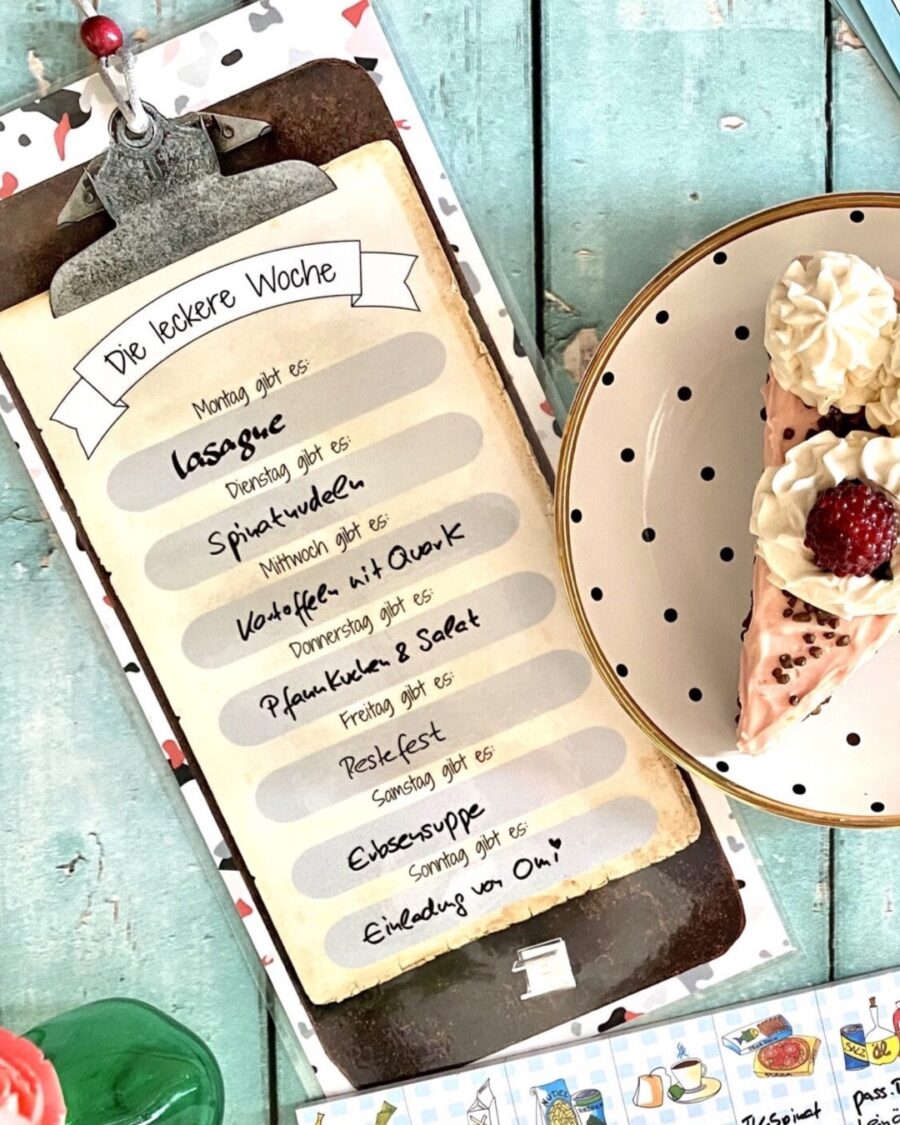 Die leckere Woche
Montag gibt es:
Lasagne
Dienstag gibt es:
Spinatnudeln
Mittwoch gibt es:
Kartoffeln mit Quark
Donnerstag gibt es:
Pfannkuchen & Salat
Freitag gibt es:
Restefest
Samstag gibt es:
Erbsensuppe
Sonntag gibt es:
Einladung von Omi
NUDEL
SALZ
ÖL
TK-Spinat
pass.